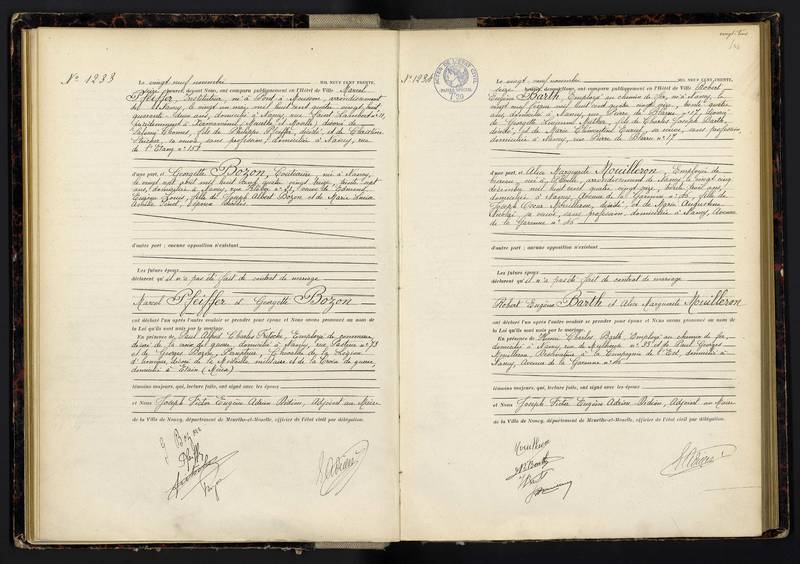 N° 1233
Le vingt neuf novembre MIL NEUF CENT TRENTE,
heures, devant Nous, ont comparu publiquement en l'Hôtel de Ville Marcel
Pfeiffer, Instituteur, né à Pont à Mousson, arrondissement
de Nancy, le vingt un mai mil huit cent quatre vingt huit,
quarante deux ans, domicilié à Nancy, rue Saint Lambert
(Meurthe et Moselle) divorcé de
fils de Philippe Pfeiffer, décédé, et de Christine
sa veuve, sans profession, domiciliée à Nancy, rue
de l'Etang n° 157
d'une part, et Georgette Bozon, Couturière, née à Nancy,
le vingt sept avril mil huit cent quatre vingt treize, trente sept
ans, domiciliée à Nancy, rue n° 21, veuve de Edmond
Eugène fille de Joseph Albert Bozon et de Marie Louise
époux décédés
d'autre part ; aucune opposition n'existant
Les futurs époux
déclarent qu'il n'a pas été fait de contrat de mariage
Marcel Pfeiffer et Georgette Bozon
ont déclaré l'un après l'autre vouloir se prendre pour époux et Nous avons prononcé au nom de
la Loi qu'ils sont unis par le mariage.
En présence de Paul Alfred Charles Fritsche, Employé de commerce,
décoré de la croix de guerre, domicilié à Nancy, rue Pasteur n° 73
et de Georges Bozon, Percepteur, Chevalier de la Légion
d'honneur, décoré de la Médaille militaire et de la Croix de guerre,
domicilié à Etain (Meuse)
témoins majeurs, qui, lecture faite, ont signé avec les époux
et Nous Joseph Victor Eugène Adrien Bidion, Adjoint au Maire
de la Ville de Nancy, département de Meurthe-et-Moselle, officier de l'état civil par délégation.
G Bozon
vingt-trois
ACTES DE L'ETAT CIVIL
PAPIER SPECIAL
N° 1234
Le vingt neuf novembre MIL NEUF CENT TRENTE,
seize heures, devant Nous, ont comparu publiquement en l'Hôtel de Ville Robert
Eugène Barth, Employé au chemin de fer, né à Nancy, le
mil huit cent quatre vingt onze, trente quatre
ans, domicilié à Nancy, rue Pierre de Blarru n° 17, divorcé
de Georgette fils de Charles Joseph Barth,
décédé, et de Marie Clémentine sa veuve, sans profession,
domiciliée à Nancy, rue Pierre de Blarru n° 17
d'une part, et Alice Marguerite Mouilleron, Employée de
bureau, née à arrondissement de Nancy, le vingt cinq
décembre mil huit cent quatre vingt dix, ans,
domiciliée à Nancy, Avenue de la Garenne n° 46, fille de
Joseph Oscar Mouilleron, décédé, et de Marie Augustine
sa veuve, sans profession, domiciliée à Nancy, Avenue
de la Garenne n° 46
d'autre part ; aucune opposition n'existant
Les futurs époux
déclarent qu'il n'a pas été fait de contrat de mariage
Robert Eugène Barth et Alice Marguerite Mouilleron
ont déclaré l'un après l'autre vouloir se prendre pour époux et Nous avons prononcé au nom de
la Loi qu'ils sont unis par le mariage.
En présence de Henri Charles Barth, Employé au chemin de fer,
domicilié à Nancy, rue de n° 33 et de Paul Georges
Mouilleron, Dessinateur à la Compagnie de l'Est, domicilié à
Nancy, Avenue de la Garenne n° 46
témoins majeurs, qui, lecture faite, ont signé avec les époux
et Nous Joseph Victor Eugène Adrien Bidion, Adjoint au Maire
de la Ville de Nancy, département de Meurthe-et-Moselle, officier de l'état civil par délégation.
Mouilleron